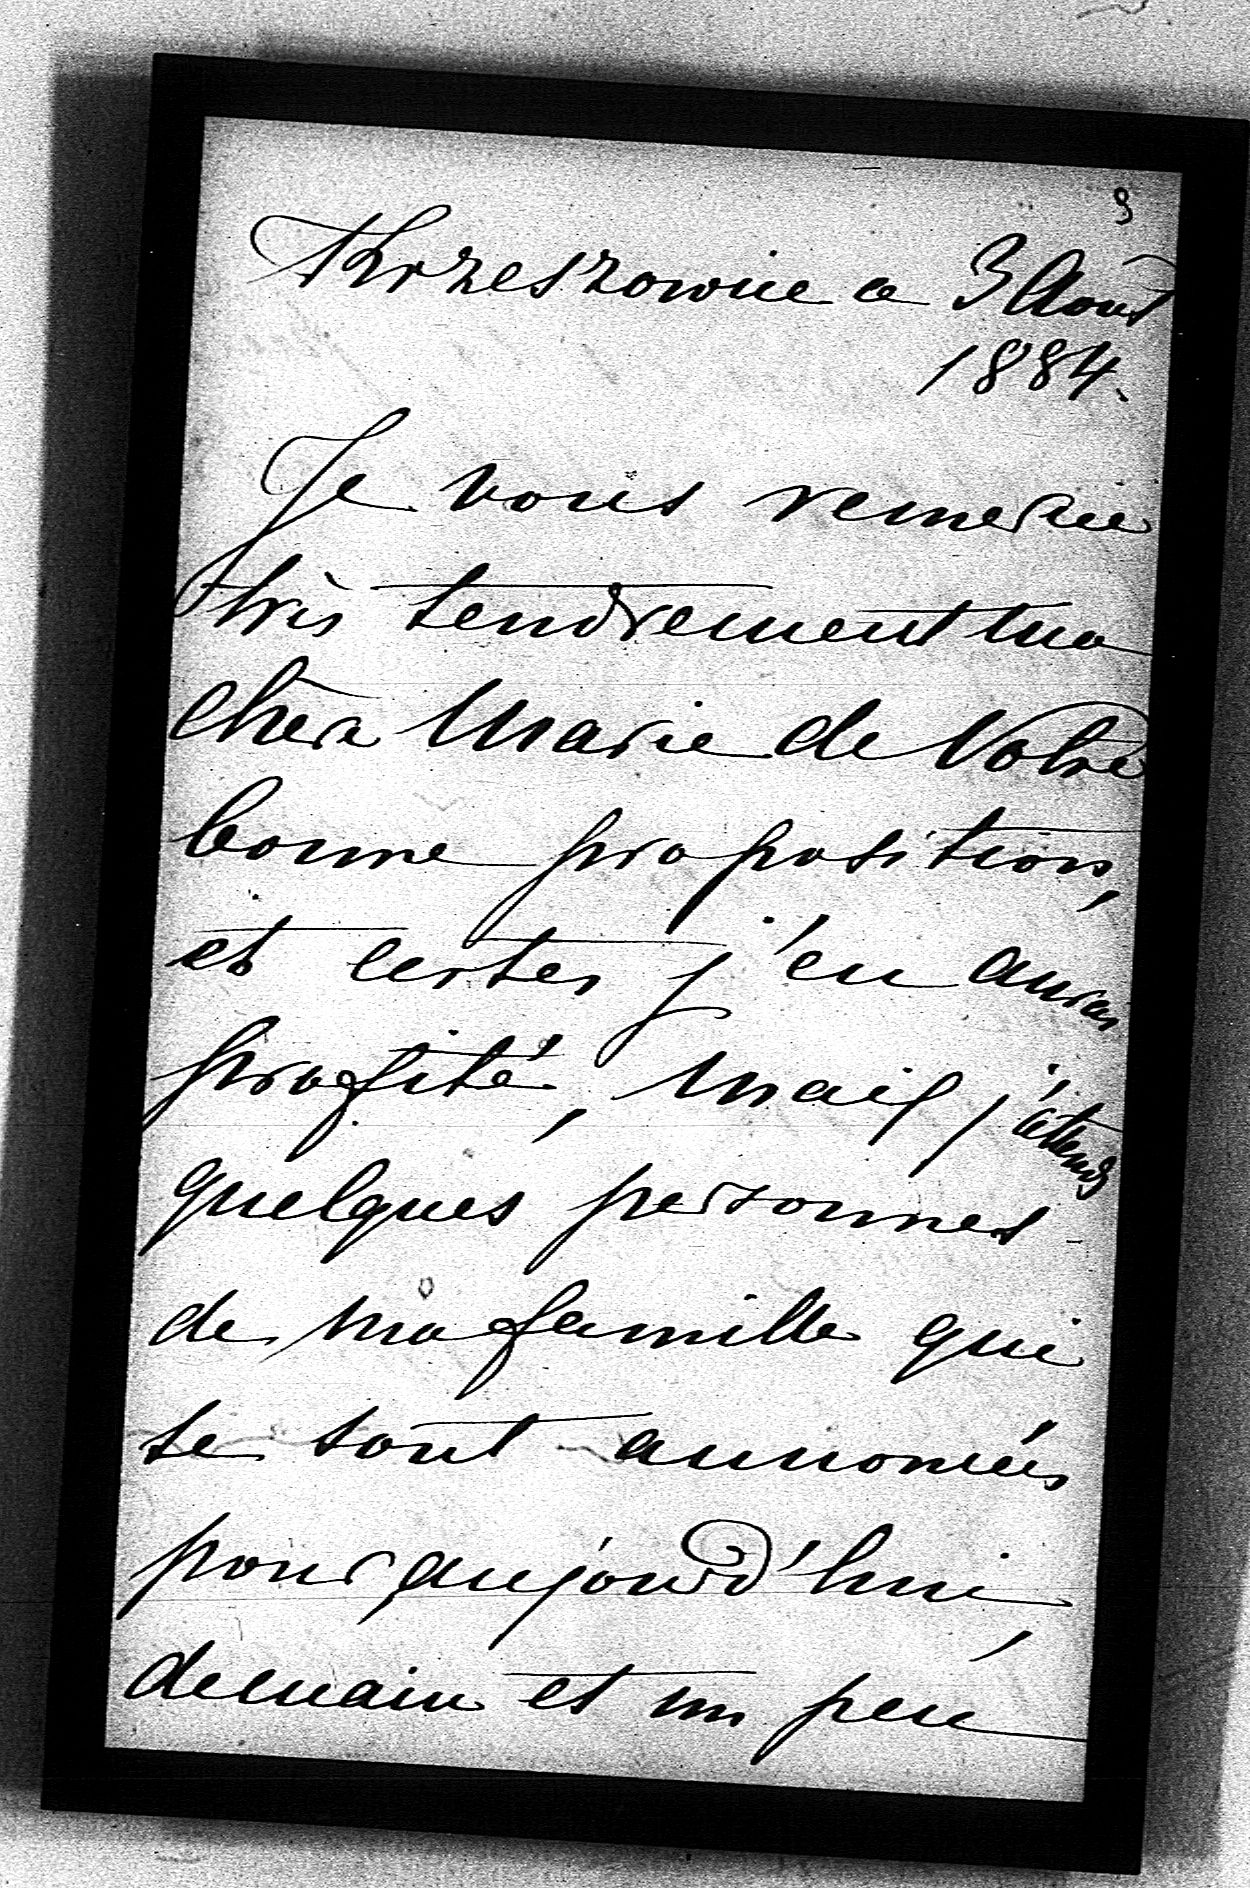 9
Krzeszowice a 3 Août
1884.
Je vous remercie
très tendrement ma
chère Marie de Votre
bonne proposition,
et certes j'en aurais
profité, mais j'attends
quelques personnes
de ma famille qui
se sont annoncées
pour aujourd'hui,
demain et un peu